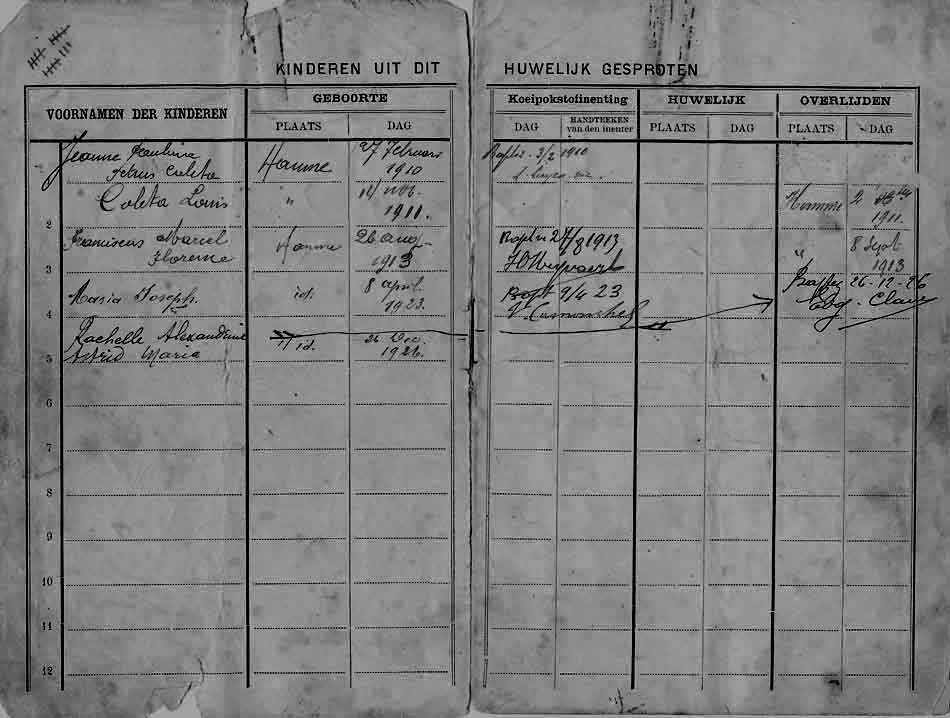 KINDEREN UIT DIT HUWELIJK GESPROTEN
VOORNAMEN DER KINDEREN GEBOORTE Koeipokstofinenting HUWELIJK OVERLIJDEN
PLAATS DAG DAG HANDTEEKEN van den inenter PLAATS DAG PLAATS DAG
1 Jeanne Paulina 27 Februari 3/2 1910
Petrus Coleta Hamme 1910
2 Coleta Louis " 14 nov. Hamme 2
1911. 1911.
3 Franciscus Marcel Hamme 26 aug. 1913 8 Sept
Florence 1913 " 1913
4 Maria Joseph. id. 8 april 9/4 23 26-12-26
1923.
5 Rachelle Alexandrine id. 26 Dec.
Astrid Maria 1926.
6
7
8
9
10
11
12